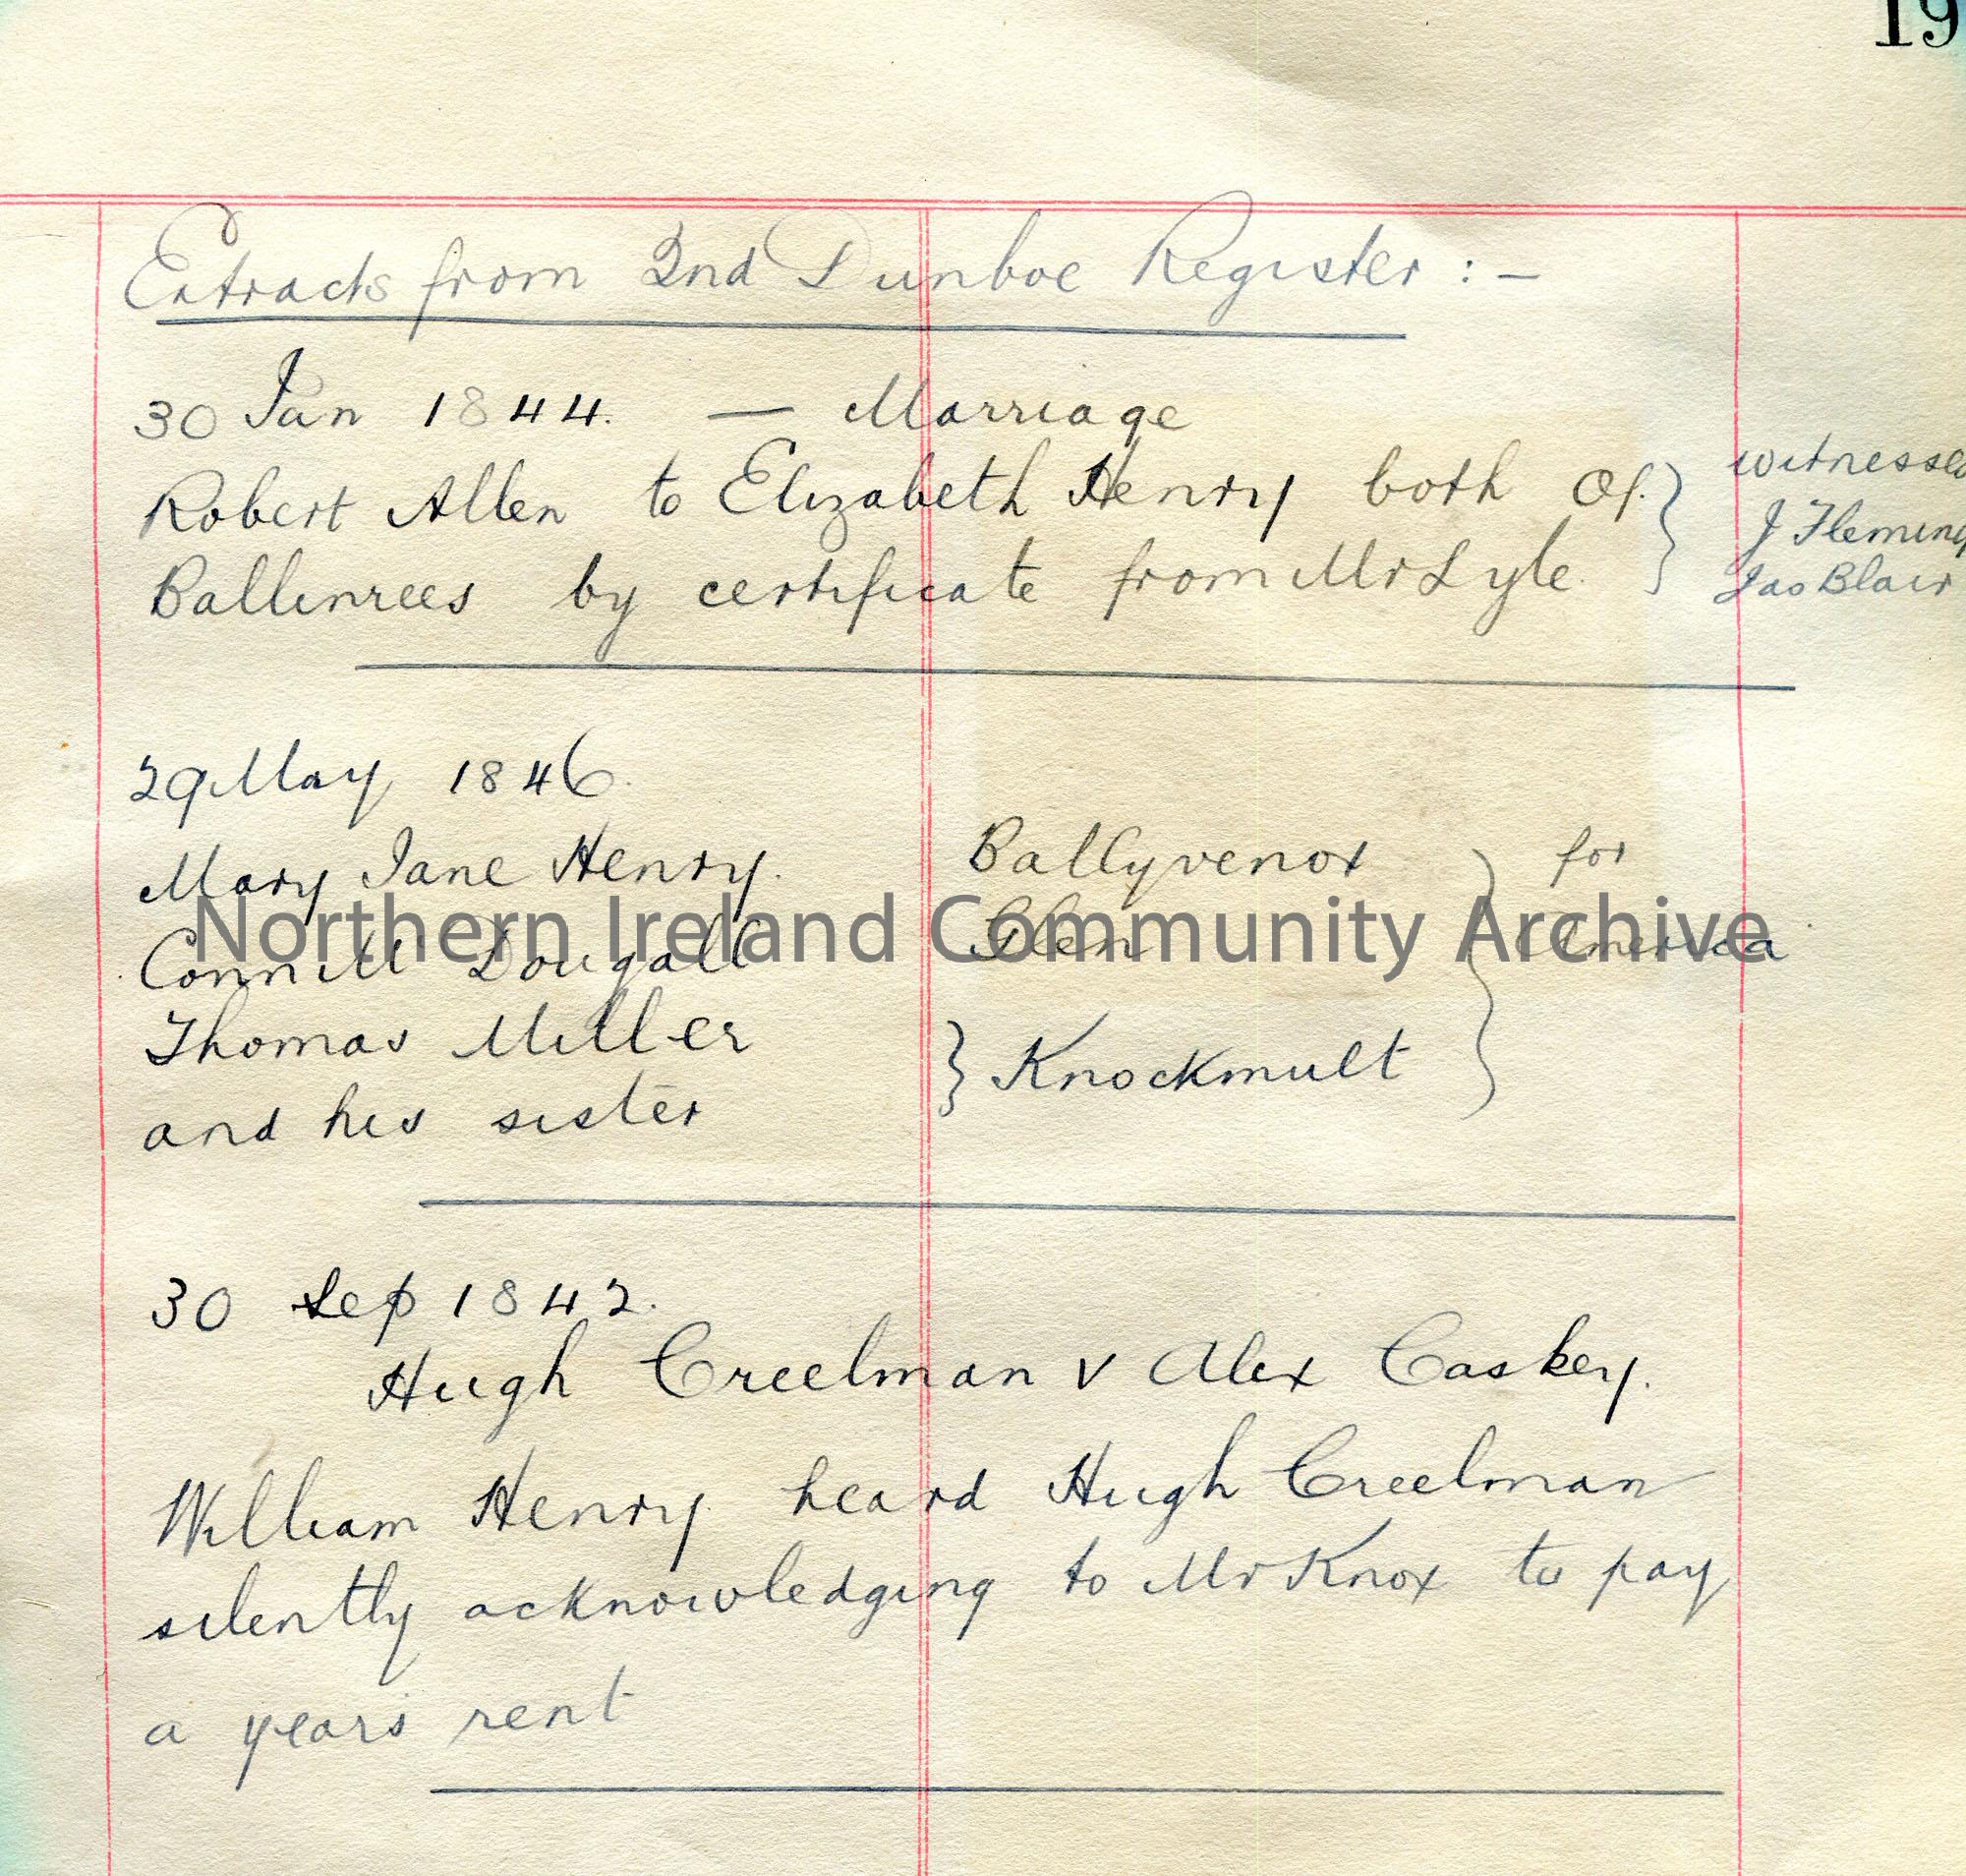 19
Extracts from 2nd Dunboe Register :-
30 Jan 1844. — Marriage
Robert Allen to Elizabeth Henry both of } witnessed
Ballinrees by certificate from Mr Lyle. } J Fleming
Jas Blair
29 May 1846.
Mary Jane Henry. Ballyvenox } for
Conn McDougall Glen } America
Thomas Miller } Knockmult
and his sister
30 Sep 1842.
Hugh Creelman v Alex Caskey.
William Henry heard Hugh Creelman
silently acknowledging to Mr Knox to pay
a years rent
Northern Ireland Community Archive